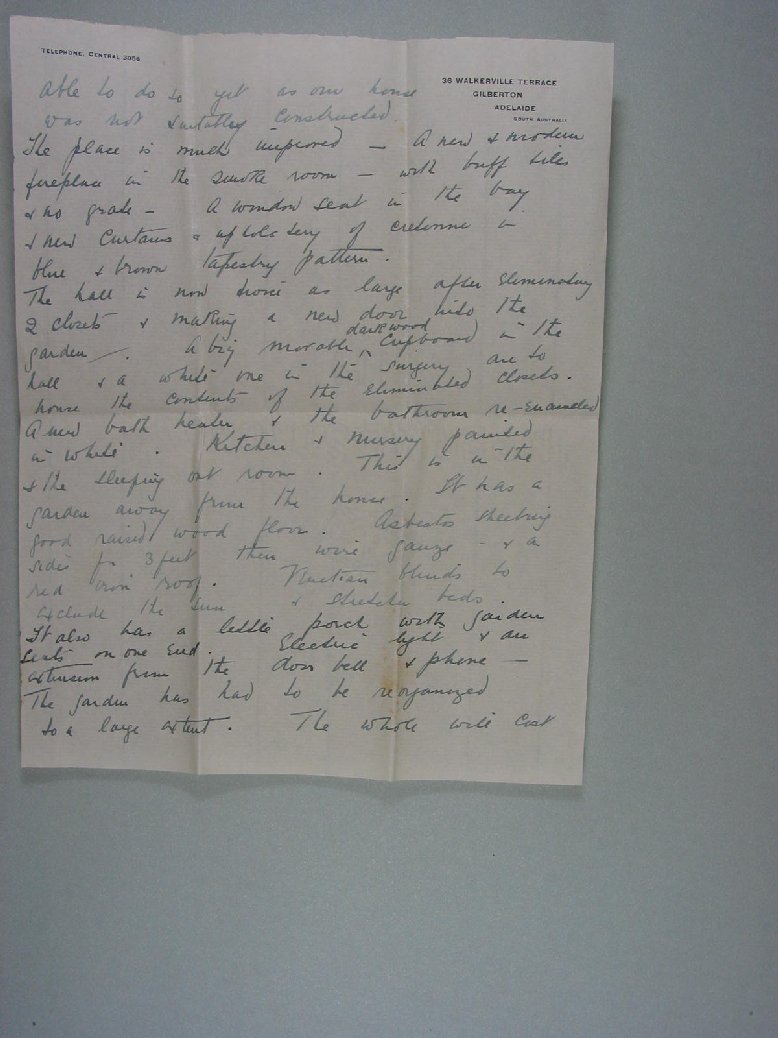 TELEPHONE, CENTRAL 3056
36 WALKERVILLE TERRACE
GILBERTON
ADELAIDE
SOUTH AUSTRALIA
able to do so yet as our house
was not suitably constructed.
The place is much improved — A new & modern
fireplace in the smoke room — with buff tiles
& no grate — A window seat in the bay
& new curtains & upholstery of cretonne in
blue & brown tapestry pattern.
The hall is now twice as large after eliminating
2 closets & making a new door into the
garden —. A big movable dark wood cupboard in the
hall & a white one in the surgery are to
house the contents of the eliminated closets.
A new bath heater & the bathroom re-enamelled
in white. Kitchen & nursery painted
& the sleeping out room. This is in the
garden away from the house. It has a
good raised wood floor. Asbestos sheeting
sides for 3 feet then wire gauze — & a
red iron roof. Venetian blinds to
exclude the sun & stretcher beds.
It also has a little porch with garden
seats on one end. Electric light & an
extension from the door bell & phone —
The garden has had to be reorganized
to a large extent. The whole will cost